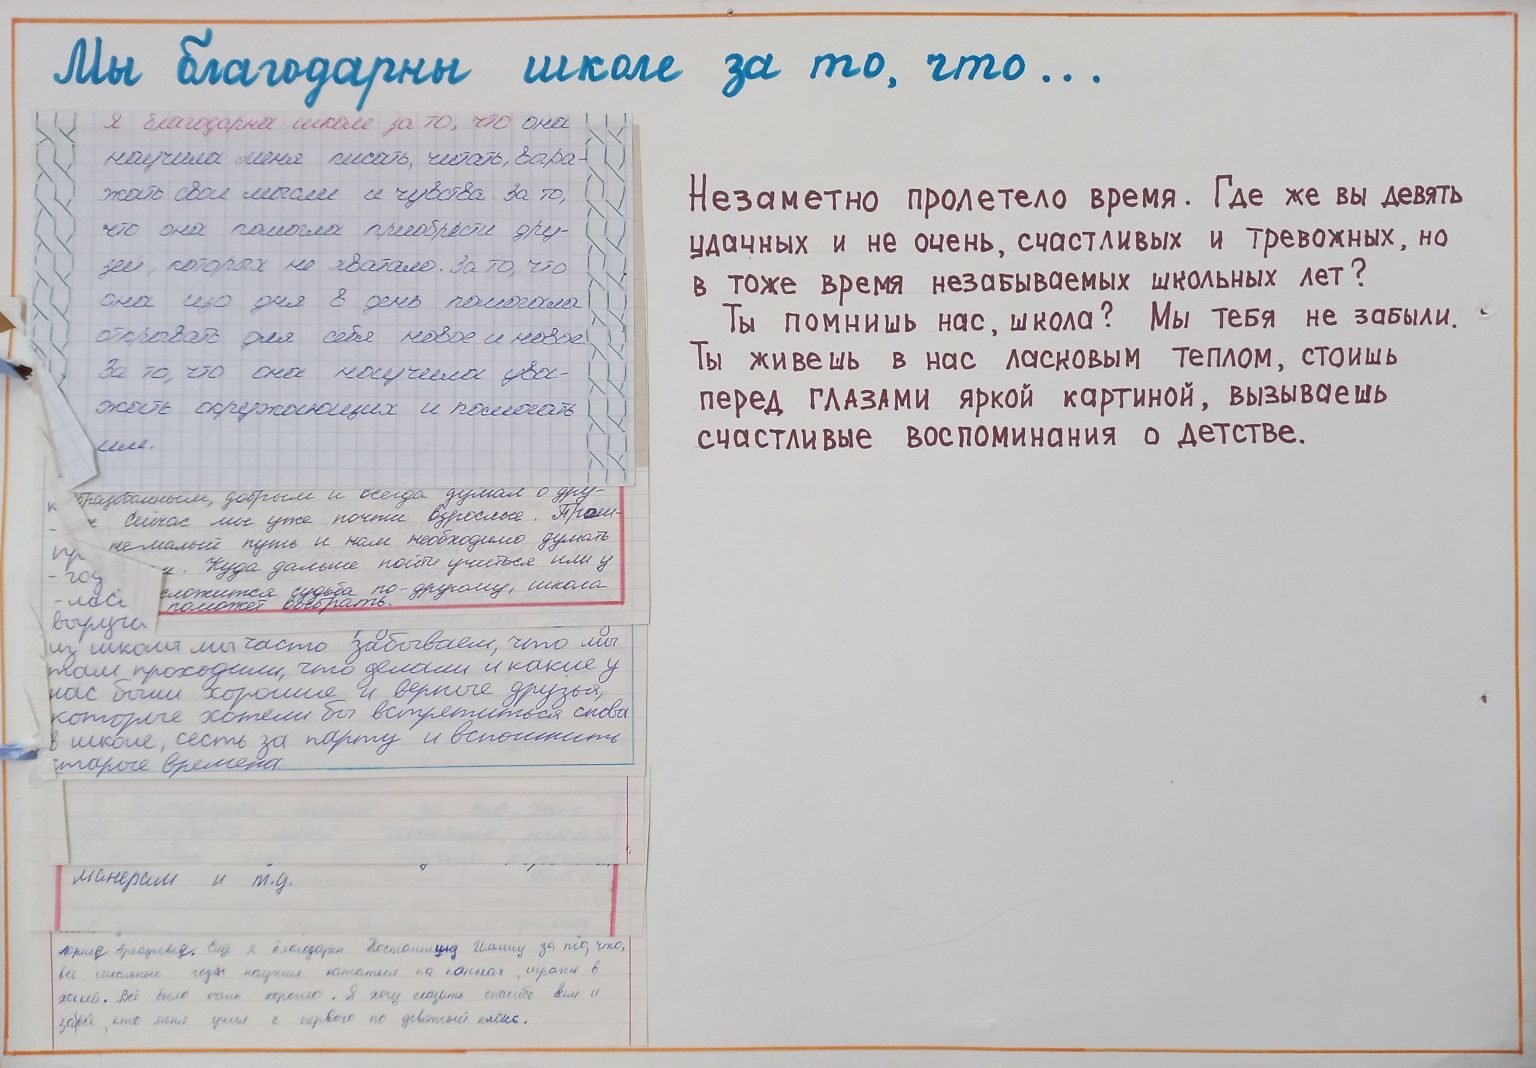 Мы благодарны школе за то, что...
Я благодарна школе за то, что она
научила меня писать, читать, выра-
жать свои мысли и чувства. За то,
что она помогла приобрести дру-
зей, которых не хватало. За то, что
она изо дня в день помогала
открывать для себя новое и новое
За то, что она научила ува-
жать окружающих и помогать
им.
добрым и всегда думал о дру-
Сейчас мы уже почти взрослые.
немалый путь и нам необходимо думать
Куда дальше пойти учиться или у
сложится судьба по-другому, школа
поможет выбрать.
из школы мы часто забываем, что мы
там проходили, что делали и какие у
нас были хорошие и верные друзья,
которые хотели бы встретиться снова
в школе, сесть за парту и вспомнить
старые времена
манерам и т.д.
я благодарен за то, что,
все школьные годы научил кататься на коньках, играть в
хоккей. Всё было очень хорошо. Я хочу сказать спасибо всем
кто меня учил с первого по девятый класс.
Незаметно пролетело время. Где же вы девять
удачных и не очень, счастливых и тревожных, но
в тоже время незабываемых школьных лет?
Ты помнишь нас, школа? Мы тебя не забыли.
Ты живешь в нас ласковым теплом, стоишь
перед глазами яркой картиной, вызываешь
счастливые воспоминания о детстве.